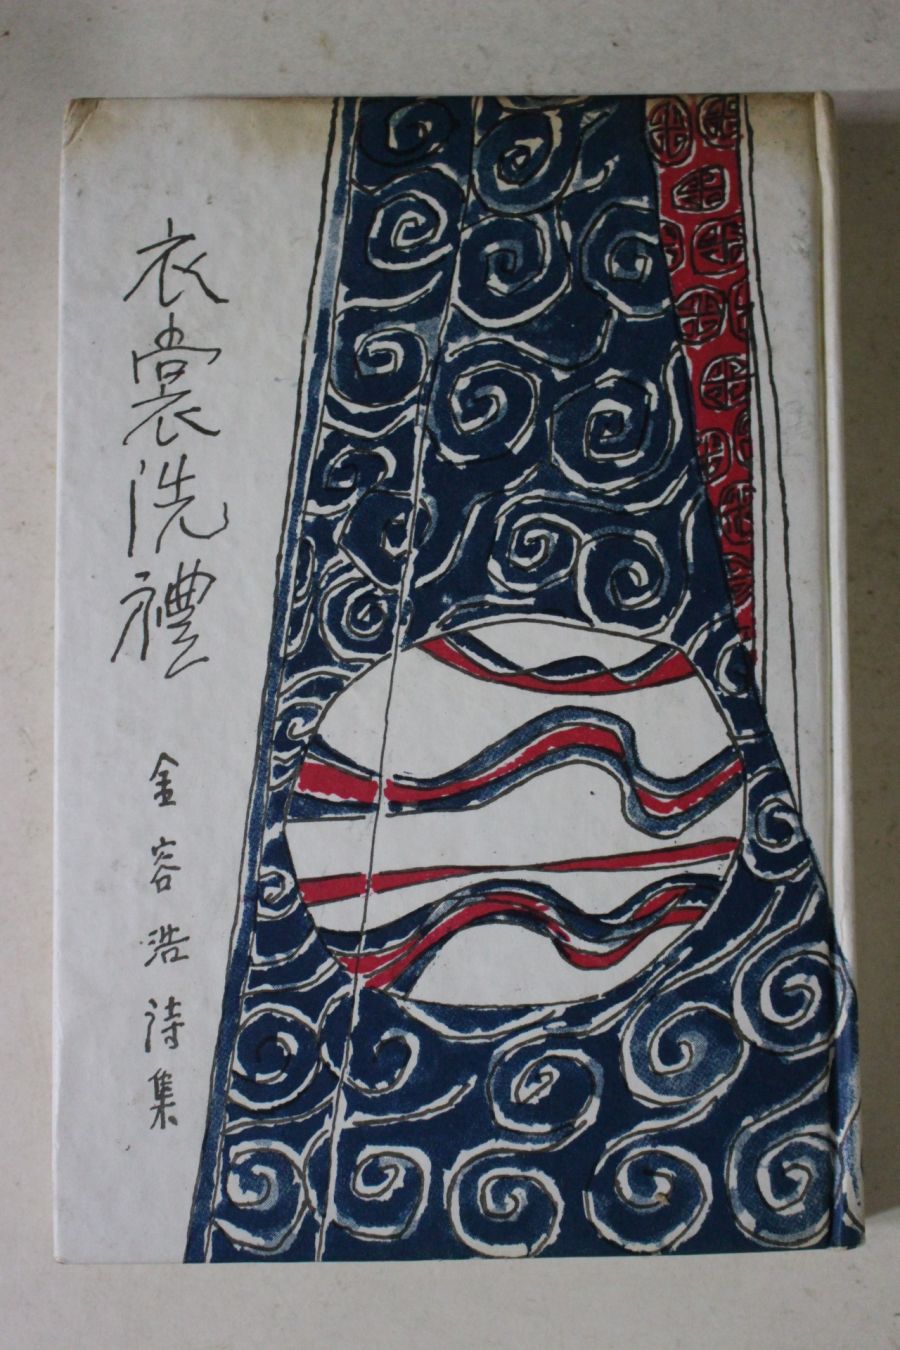 衣裳洗禮
金容浩 詩集